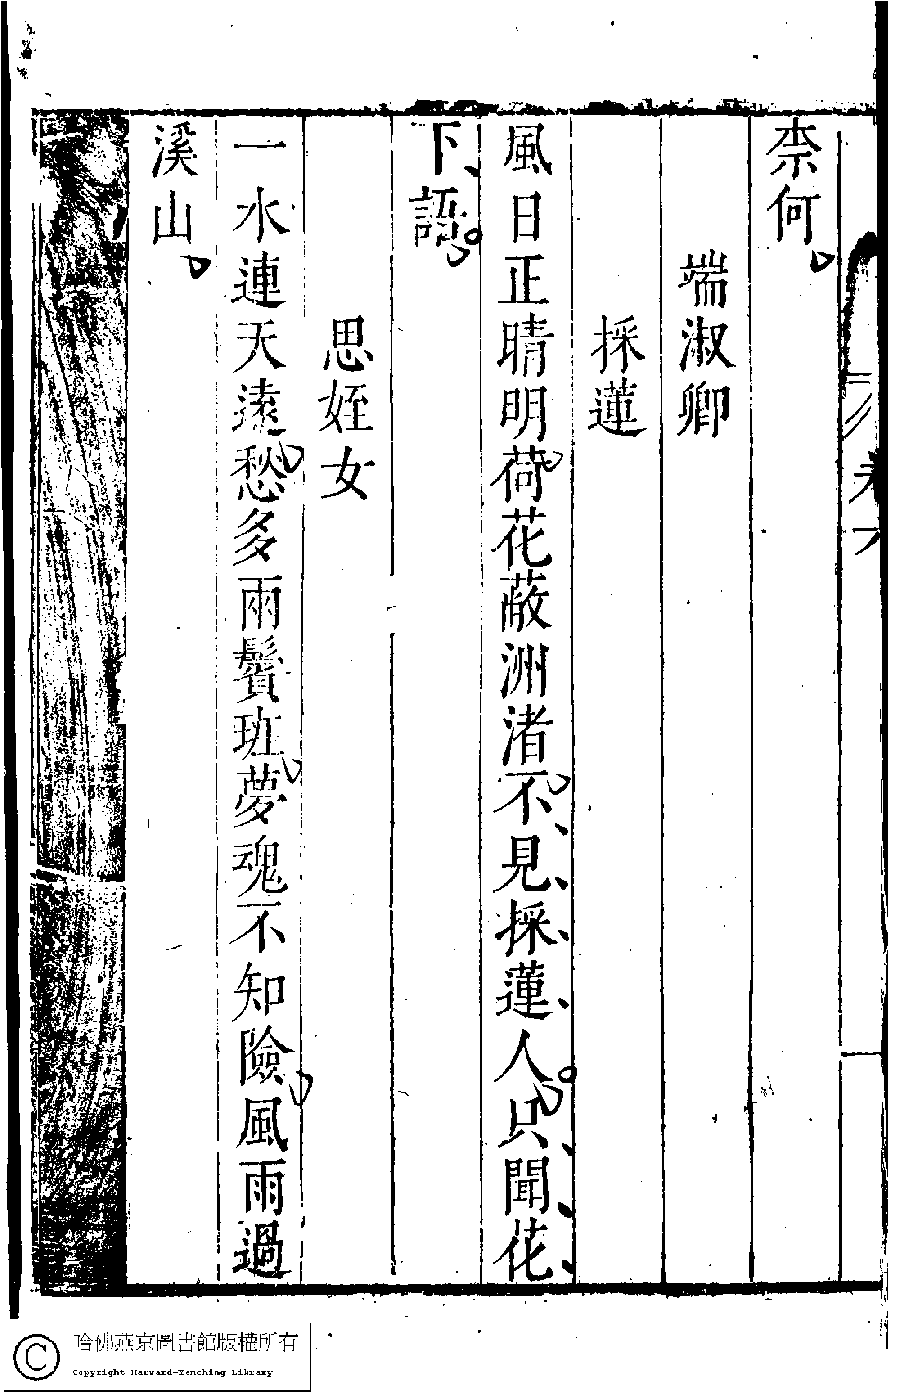 柰何
端淑卿
採蓮
風日正晴明荷花蔽洲渚不見採蓮人只聞花
下語
思姪女
一水連天遠愁多兩鬢班夢魂不知險風雨過
溪山
哈佛燕京圖書館版權所有
Copyright Harvard-Yenching Library